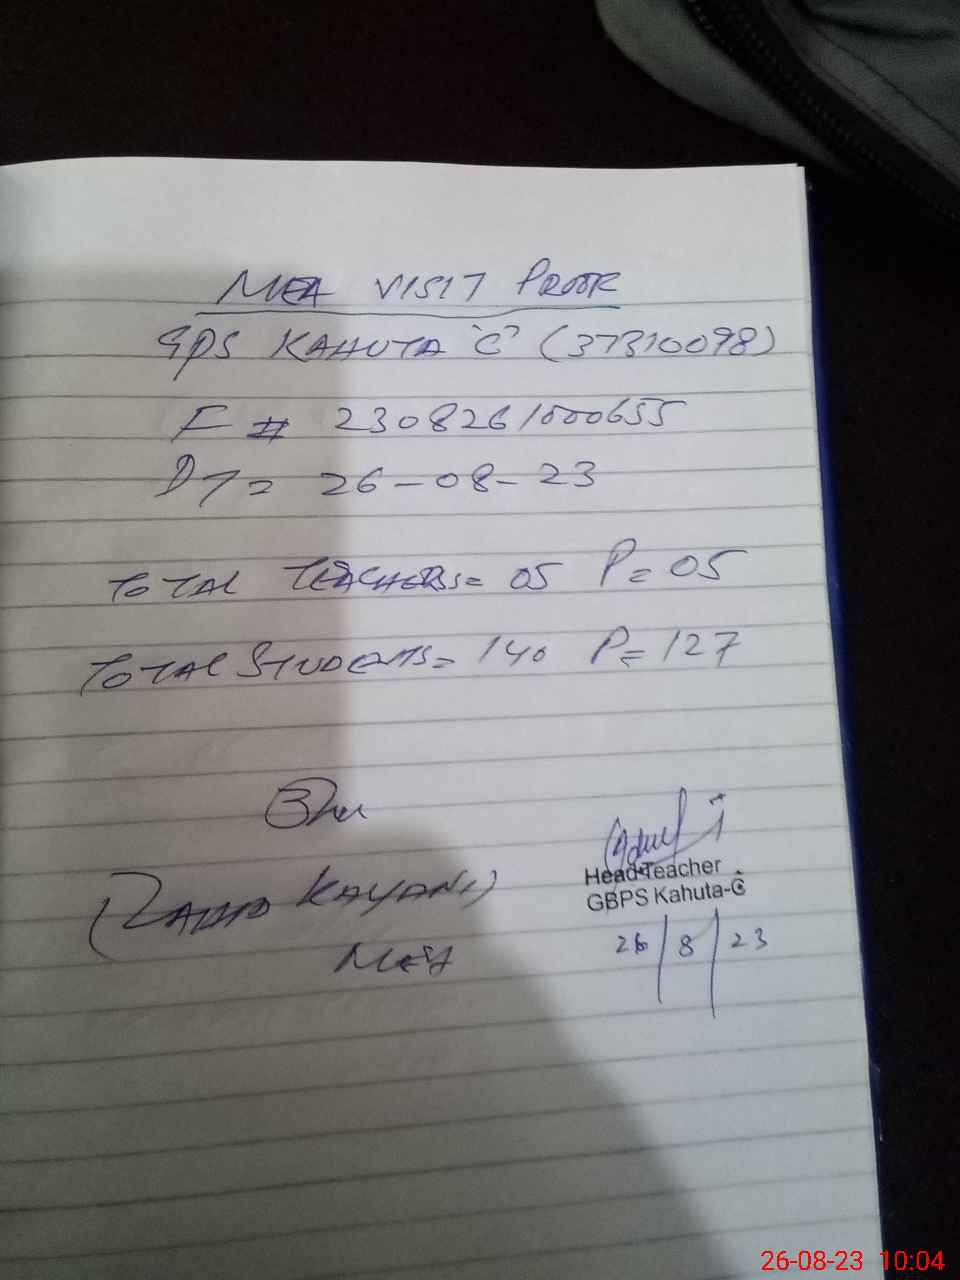 MEA VISIT PROOF
GPS KAHUTA "C" (37310098)
F # 2308261000655
DT= 26-08-23
TOTAL TEACHERS= 05 P= 05
TOTAL STUDENTS= 140 P= 127
(ZAHID KAYANI)
MEA
Head Teacher
GBPS Kahuta-C
26/8/23
26-08-23 10:04